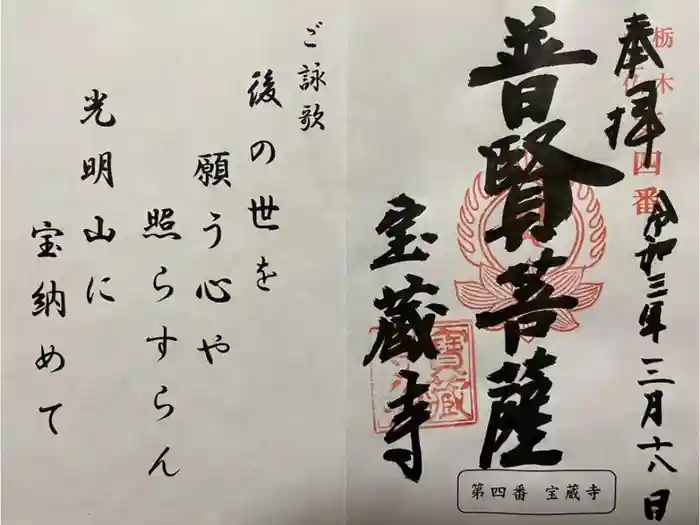 奉拝
栃木
四番
令和三年三月十八日
普賢菩薩
宝蔵寺
寶蔵
第四番 宝蔵寺
ご詠歌
後の世を
願う心や
照らすらん
光明山に
宝納めて